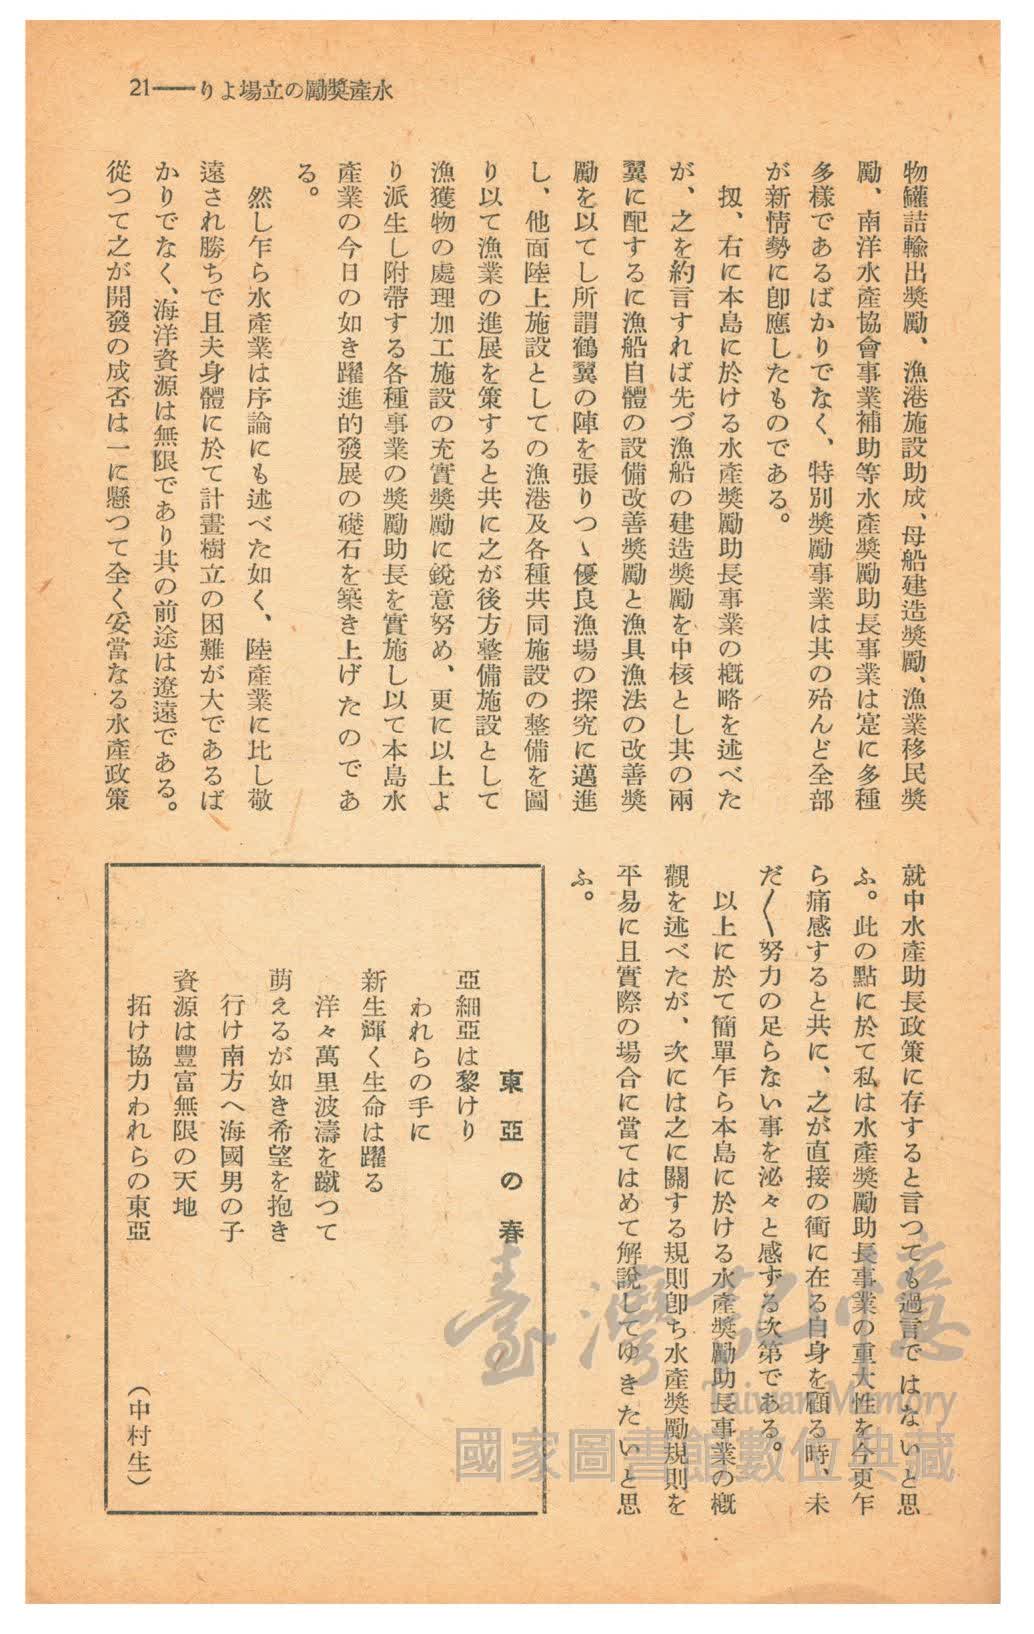 水產奬勵の立場より――21
物罐詰輸出奬勵、漁港施設助成、母船建造奬勵、漁業移民奬
勵、南洋水產協會事業補助等水產奬勵助長事業は寔に多種
多樣であるばかりでなく、特別奬勵事業は其の殆んど全部
が新情勢に卽應したものである。
扨、右に本島に於ける水產奬勵助長事業の槪略を述べた
が、之を約言すれば先づ漁船の建造奬勵を中核とし其の兩
翼に配するに漁船自體の設備改善奬勵と漁具漁法の改善奬
勵を以てし所謂鶴翼の陣を張りつゝ優良漁場の探究に邁進
し、他面陸上施設としての漁港及各種共同施設の整備を圖
り以て漁業の進展を策すると共に之が後方整備施設として
漁獲物の處理加工施設の充實奬勵に銳意努め、更に以上よ
り派生し附帶する各種事業の奬勵助長を實施し以て本島水
產業の今日の如き躍進的發展の礎石を築き上げたのであ
る。
然し乍ら水產業は序論にも述べた如く、陸產業に比し敬
遠され勝ちで且夫身體に於て計畫樹立の困難が大であるば
かりでなく、海洋資源は無限であり其の前途は遼遠である。
從つて之が開發の成否は一に懸つて全く妥當なる水產政策
就中水產助長政策に存すると言つても過言ではないと思
ふ。此の點に於て私は水產奬勵助長事業の重大性を今更乍
ら痛感すると共に、之が直接の衝に在る自身を顧る時、未
だ〱努力の足らない事を泌々と感ずる次第である。
以上に於て簡單乍ら本島に於ける水產奬勵助長事業の槪
觀を述べたが、次には之に關する規則卽ち水產奬勵規則を
平易に且實際の場合に當てはめて解說してゆきたいと思
ふ。
東亞の春
亞細亞は黎けり
われらの手に
新生輝く生命は躍る
洋々萬里波濤を蹴つて
萌えるが如き希望を抱き
行け南方へ海國男の子
資源は豐富無限の天地
拓け協力われらの東亞
(中村生)
臺灣記憶
Taiwan Memory
國家圖書館數位典藏